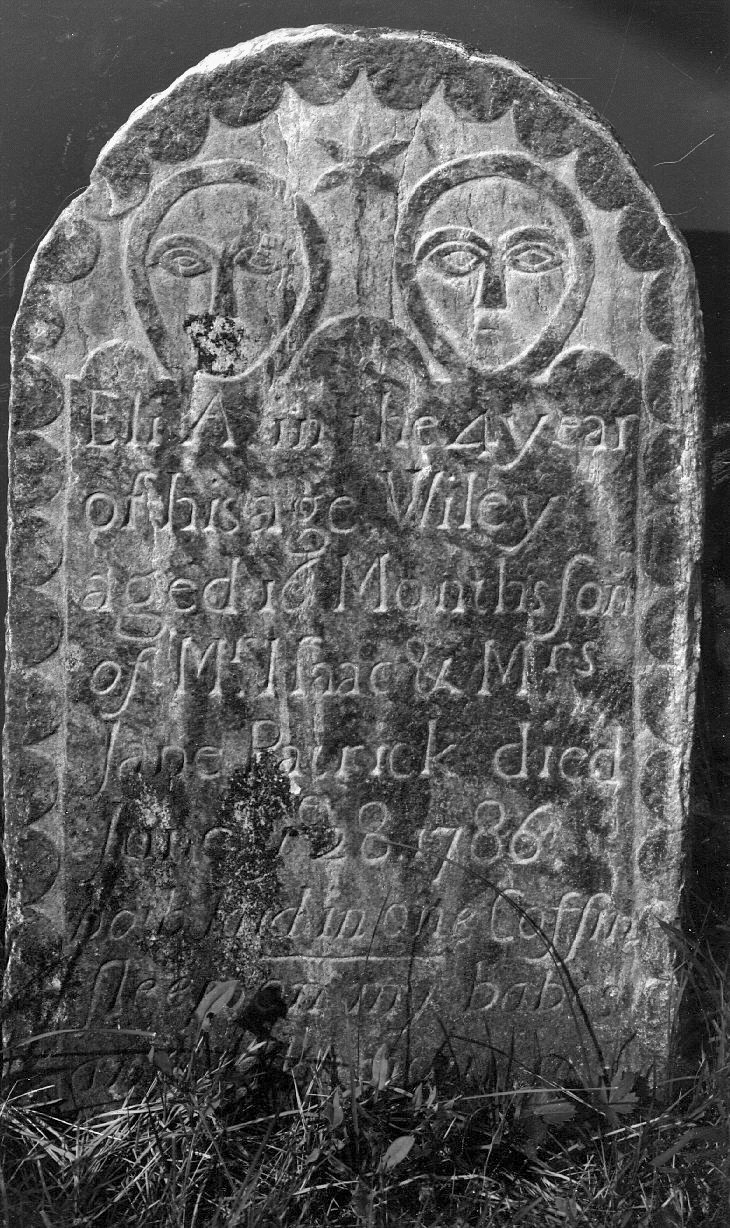 Eli A in the 4 year
of his age Wiley
aged 16 Months ſon
of Mr. Iſaac & Mrs
Jane Patrick died
June ye 28. 1786
both laid in one Coffin
ſleep on my babes